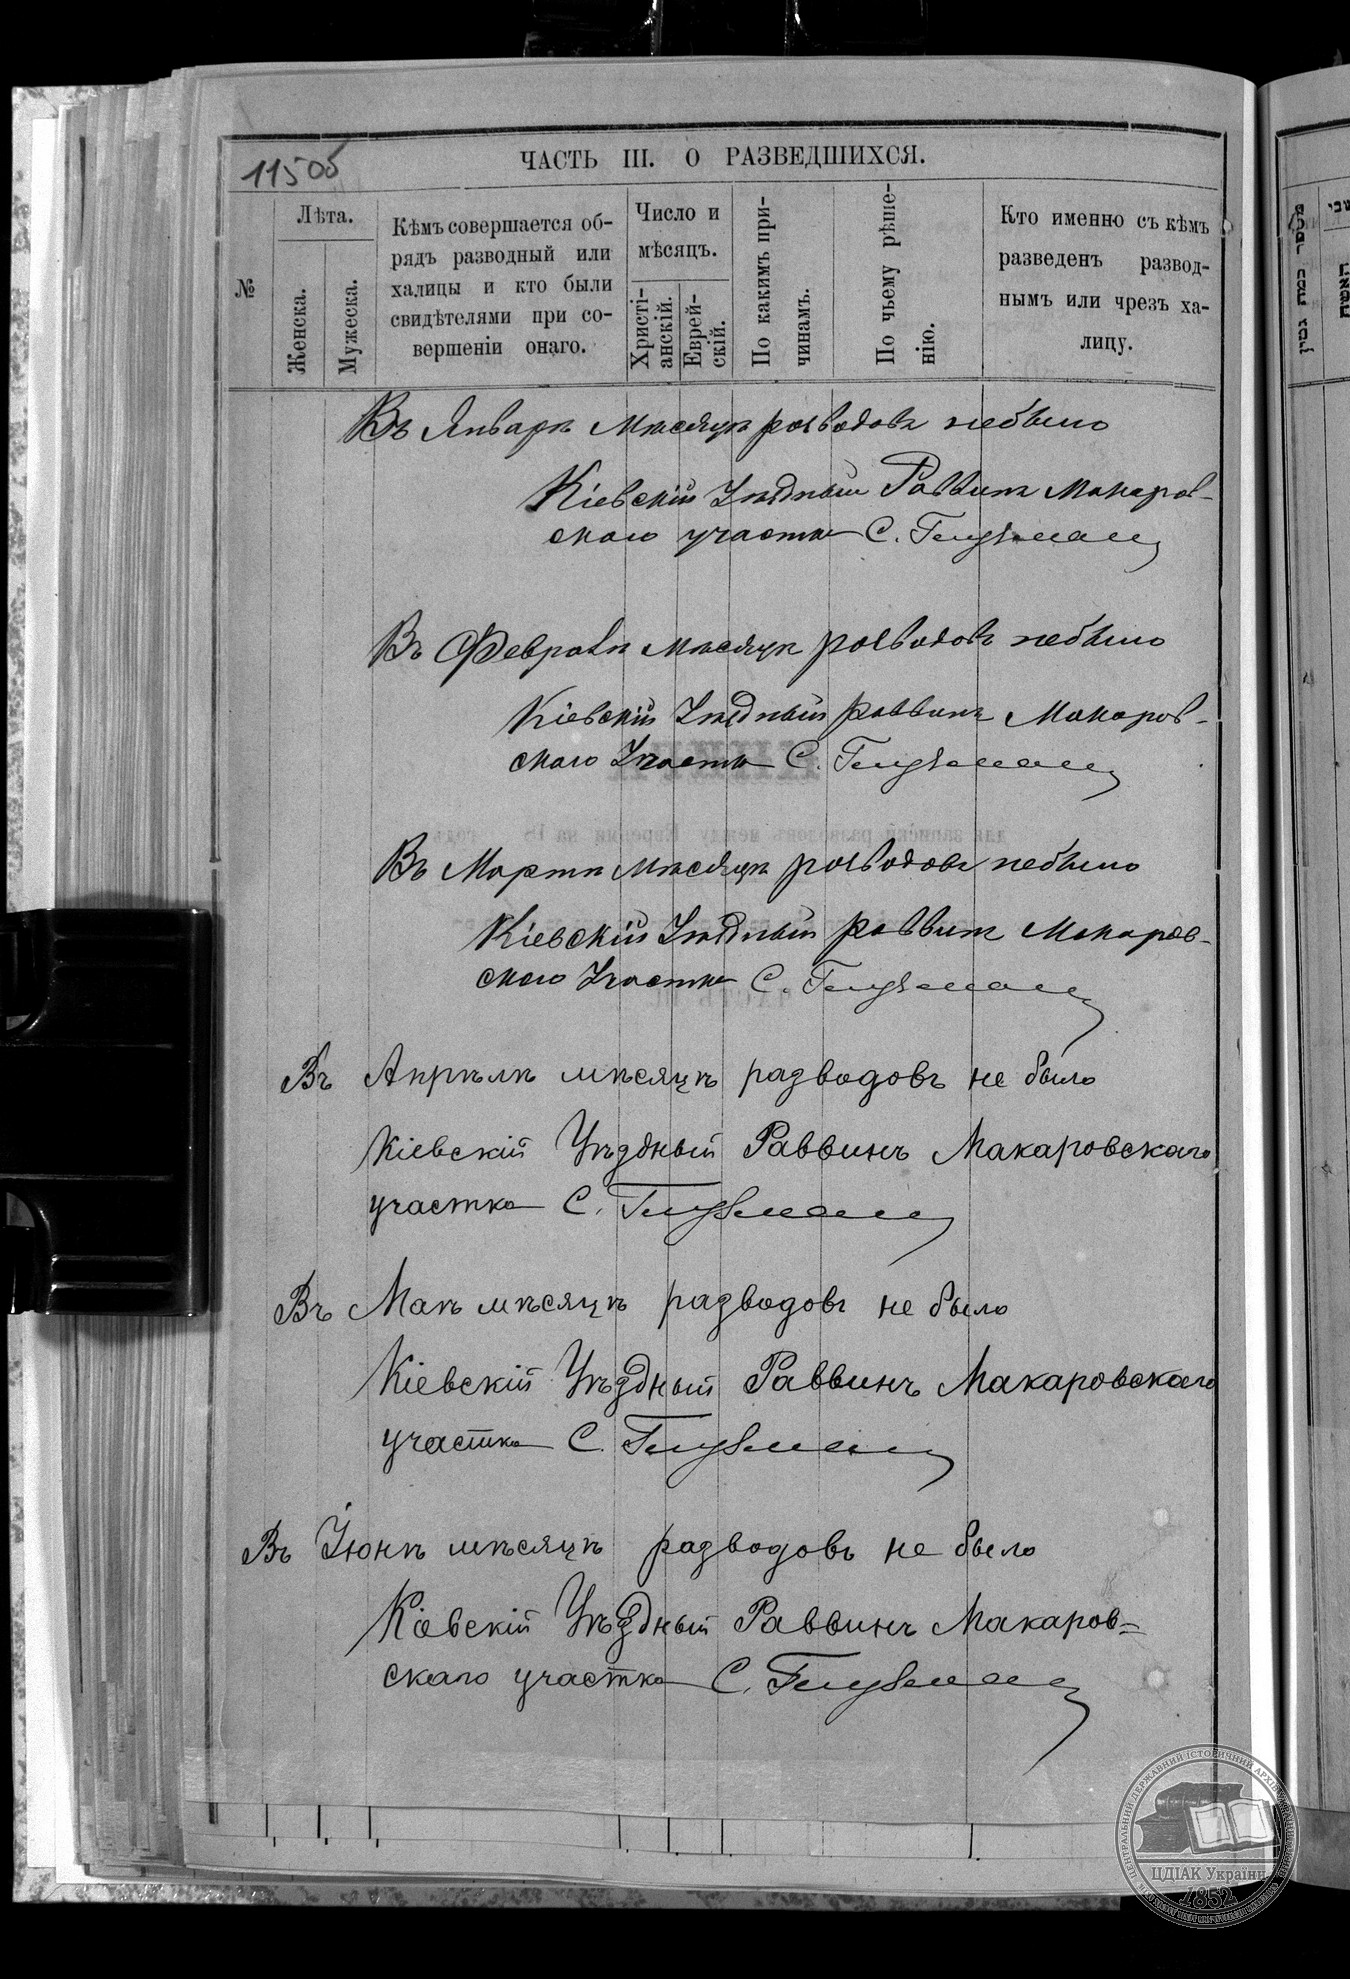 115об
ЧАСТЬ III. О РАЗВЕДШИХСЯ.
№
Лѣта.
Женска.
Мужеска.
Кѣмъ совершается об-
рядъ разводный или
халицы и кто были
свидѣтелями при со-
вершеніи онаго.
Число и
мѣсяцъ.
Христі-
анскій.
Еврей-
скій.
По какимъ при-
чинамъ.
По чьему рѣше-
нію.
Кто именно съ кѣмъ
разведенъ развод-
нымъ или чрезъ ха-
лицу.
Въ Январѣ мѣсяцѣ розводовъ небыло
Кіевскій Уѣздный Раввинъ Макаров-
скаго участка С. Глузманъ
Въ Февралѣ мѣсяцѣ розводовъ небыло
Кіевскій Уѣздный раввинъ Макаров-
скаго Участка С. Глузманъ
Въ Мартѣ мѣсяцѣ розводовъ небыло
Кіевскій Уѣздный раввинъ Макаров-
скаго Участка С. Глузманъ
Въ Апрѣлѣ мѣсяцѣ разводовъ не было
Кіевскій Уѣздный Раввинъ Макаровскаго
участка С. Глузманъ
Въ Маѣ мѣсяцѣ разводовъ не было
Кіевскій Уѣздный Раввинъ Макаровскаго
участка С. Глузманъ
Въ Іюнѣ мѣсяцѣ разводовъ не было
Кіевскій Уѣздный Раввинъ Макаров=
скаго участка С. Глузманъ
ЦЕНТРАЛЬНИЙ ДЕРЖАВНИЙ ІСТОРИЧНИЙ АРХІВ
ЦДІАК України
1852